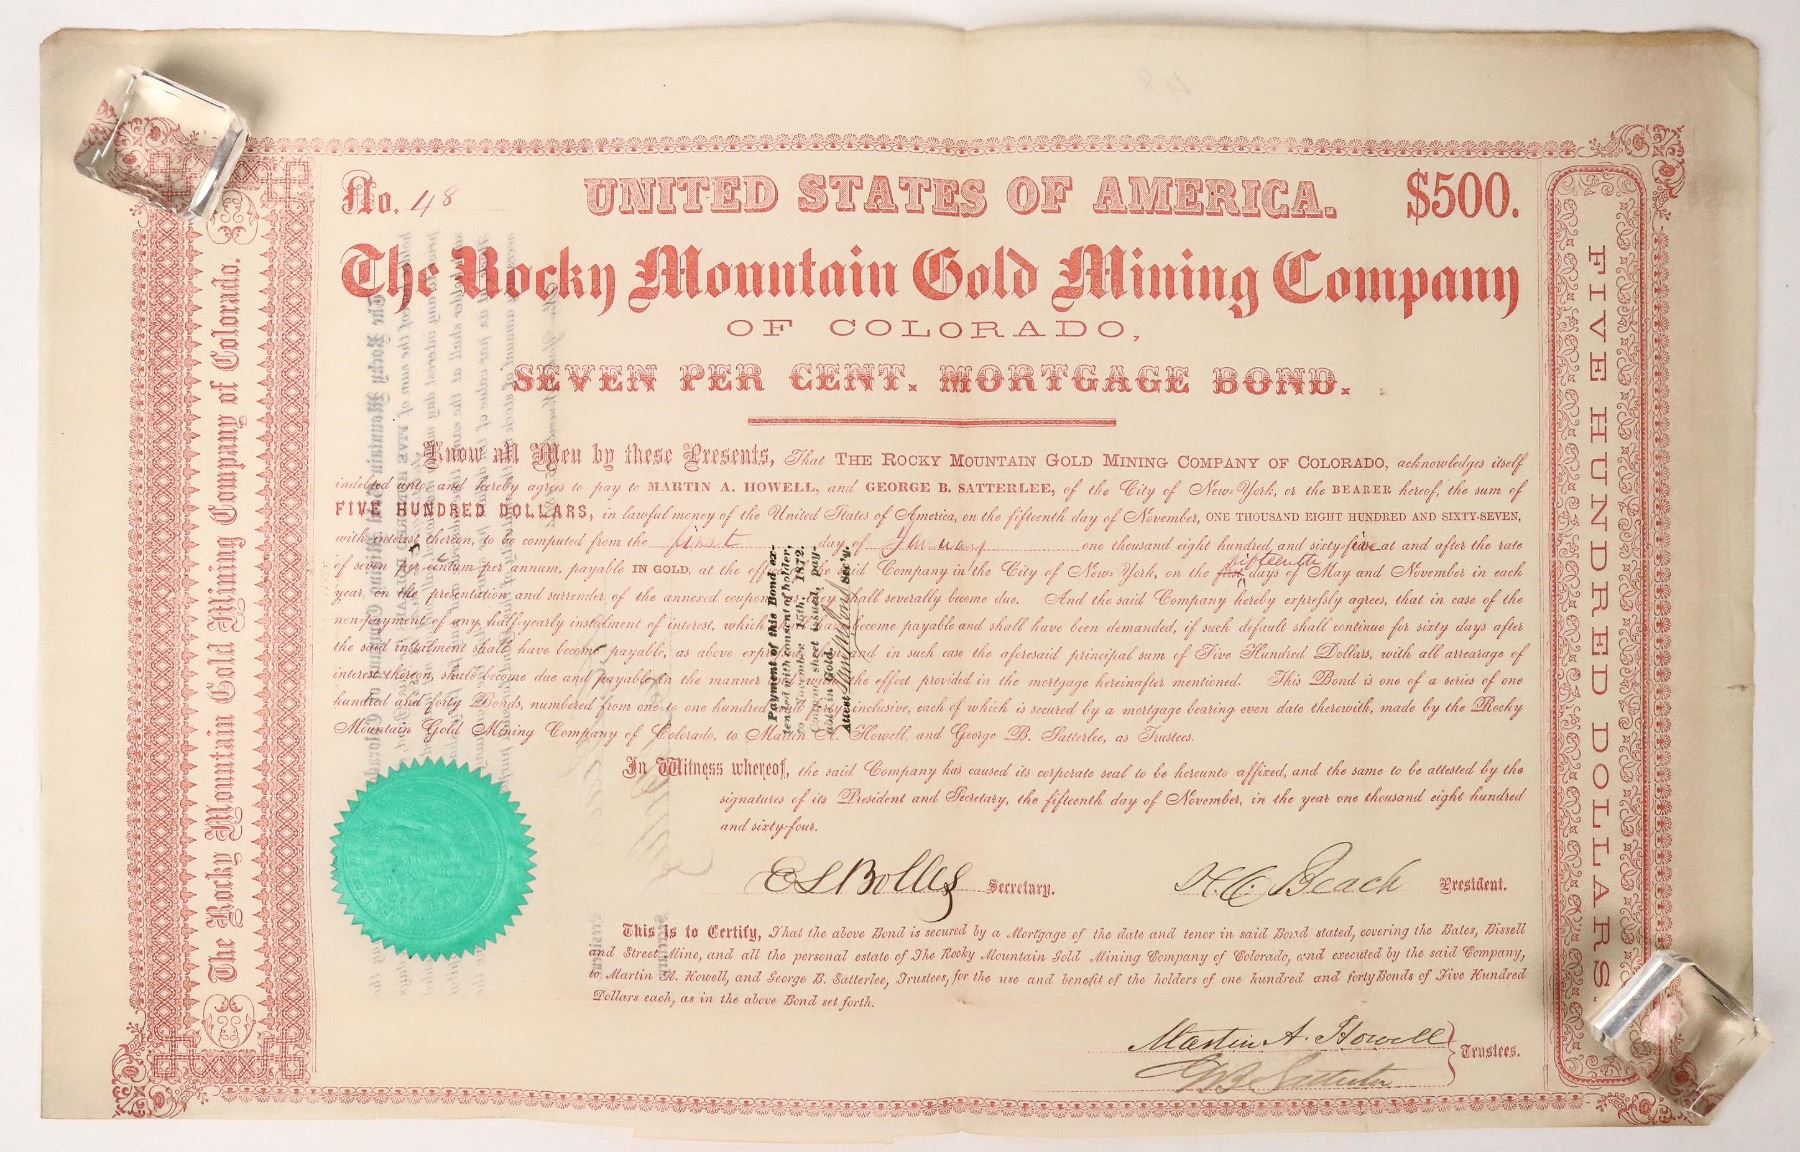 No. 48
UNITED STATES OF AMERICA.
$500.
The Rocky Mountain Gold Mining Company
OF COLORADO,
SEVEN PER CENT. MORTGAGE BOND.
Know all Men by these Presents, That THE ROCKY MOUNTAIN GOLD MINING COMPANY OF COLORADO, acknowledges itself
indebted unto and hereby agrees to pay to MARTIN A. HOWELL, and GEORGE B. SATTERLEE, of the City of New-York, or the BEARER hereof, the sum of
FIVE HUNDRED DOLLARS, in lawful money of the United States of America, on the fifteenth day of November, ONE THOUSAND EIGHT HUNDRED AND SIXTY-SEVEN,
with interest thereon, to be computed from the first day of January one thousand eight hundred and sixty-five at and after the rate
of seven per centum per annum, payable IN GOLD, at the office of the said Company in the City of New-York, on the fifteenth days of May and November in each
year, on the presentation and surrender of the annexed coupons as they shall severally become due. And the said Company hereby expressly agrees, that in case of the
non-payment of any half-yearly instalment of interest, which shall have become payable and shall have been demanded, if such default shall continue for sixty days after
the said instalment shall have become payable, as above expressed, and in such case the aforesaid principal sum of Five Hundred Dollars, with all arrearage of
interest thereon, shall become due and payable in the manner and with the effect provided in the mortgage hereinafter mentioned. This Bond is one of a series of one
hundred and forty Bonds, numbered from one to one hundred and forty inclusive, each of which is secured by a mortgage bearing even date therewith, made by the Rocky
Mountain Gold Mining Company of Colorado, to Martin A. Howell, and George B. Satterlee, as Trustees.
Payment of this Bond ex-
tended with consent of holder,
to November 15th, 1872.
Coupon sheet issued, pay-
able in Gold.
Attest Sec'y.
In Witness whereof, the said Company has caused its corporate seal to be hereunto affixed, and the same to be attested by the
signatures of its President and Secretary, the fifteenth day of November, in the year one thousand eight hundred
and sixty-four.
E S Bolles Secretary.
H. C. Beach President.
This is to Certify, That the above Bond is secured by a Mortgage of the date and tenor in said Bond stated, covering the Bates, Bissell
and Street Mine, and all the personal estate of The Rocky Mountain Gold Mining Company of Colorado, and executed by the said Company,
to Martin A. Howell, and George B. Satterlee, Trustees, for the use and benefit of the holders of one hundred and forty Bonds of Five Hundred
Dollars each, as in the above Bond set forth.
Martin A. Howell
Geo B Satterlee
Trustees.
The Rocky Mountain Gold Mining Company of Colorado.
FIVE HUNDRED DOLLARS.